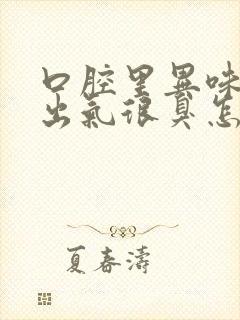 口腔里异味
出气很臭怎
夏春涛